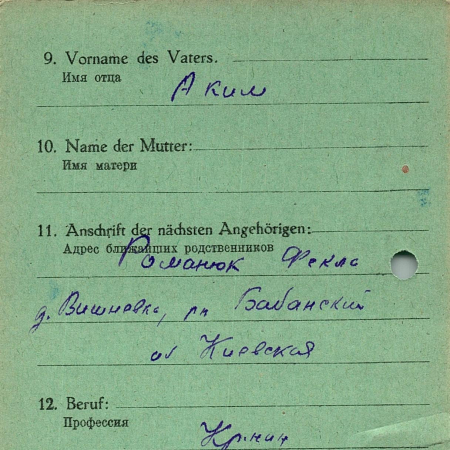 9. Vorname des Vaters.
Имя отца
Аким
10. Name der Mutter:
Имя матери
11. Anschrift der nächsten Angehörigen:
Адрес ближайших родственников
Романюк Фекла
д. Вишневка, рн Бабанский
об Киевская
12. Beruf:
Профессия